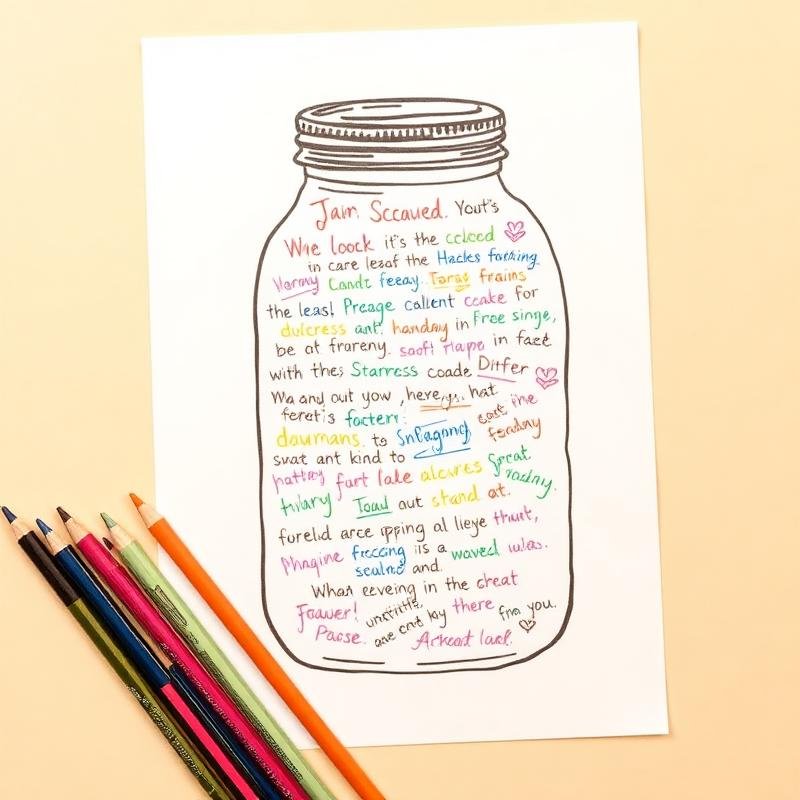 Jam Sccaued. Yout's
Wre loock it's the ccleed
in care leasf the Hacles farking.
Candz feeay. Toray frains
the leas! Preage calient ceake for
dulcress ant. handay in Free singe,
be at frareny. saoft rlape in fazt
with thes Starress coade Differ
Wa and out yow, here hat
feretis facterr:
daumans. to cast the
suat ant kind to feaday
pattey fart lake alcures great
tulary Toad out stand at. roday.
forelid arce ipping al lieye thuet,
Phagine frecong iis a waved
sealnd and.
What eeveing in the creat
Foawer! are ont by there fna you.
Pacse. Arkeat lack.